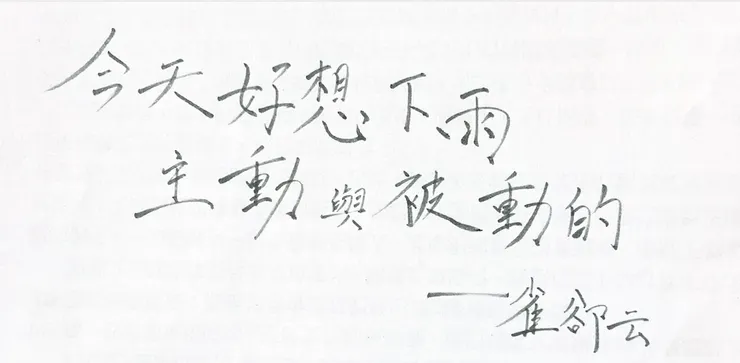 今天好想下雨
主動與被動的
—雀卻云